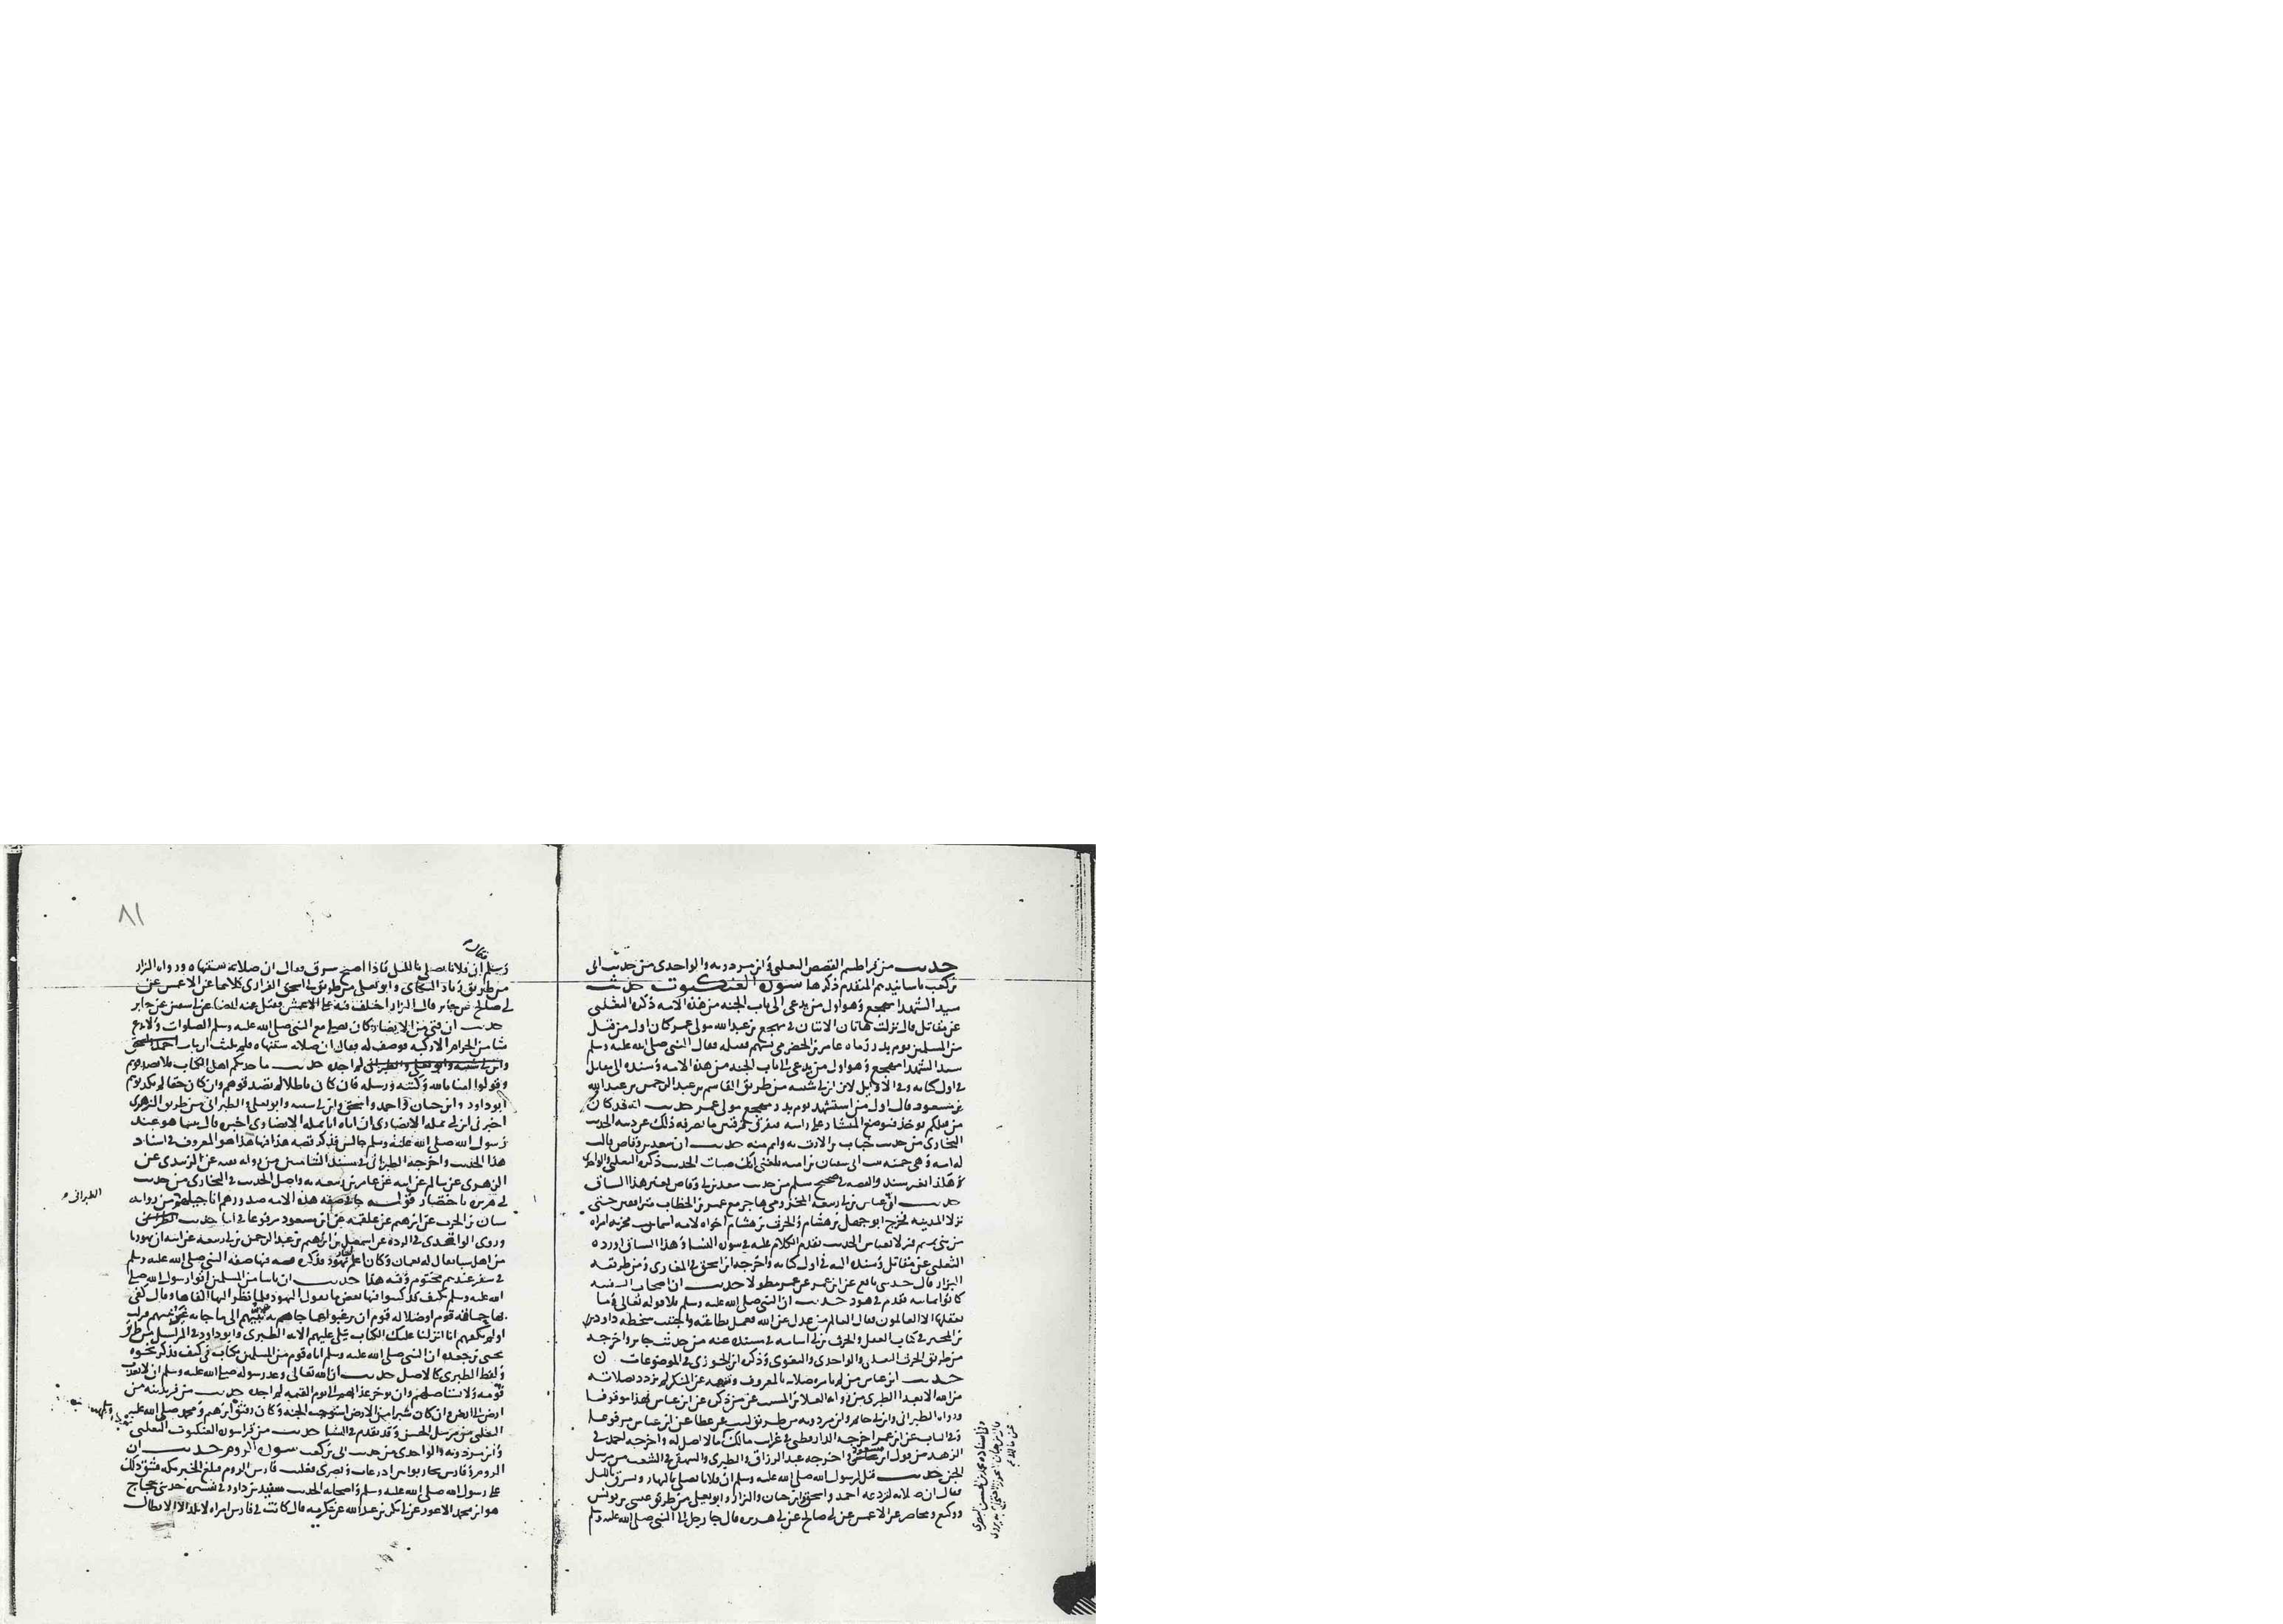 حديث من قرا طسم القصص الثعلبي وابن مردويه والواحدي من حديث ابي
بن كعب باسانيدهم المتقدم ذكرها سورة العنكبوت حديث
سيد الشهدا مهجع وهو اول من يدعى الى باب الجنة من هذه الامه ذكره الثعلبي
عن مقاتل قال نزلت هاتان الايتان في مهجع بن عبد الله مولى عمر كان اول من قتل
من المسلمين يوم بدر رماه عامر بن الحضرمي بسهم فقتله فقال النبي صلى الله عليه وسلم
سيد الشهدا مهجع وهو اول من يدعى الى باب الجنه من هذه الامه وسنده الى مقاتل
في اول كتابه وفي الاوايل لابن ابي شيبه من طريق القاسم بن عبد الرحمن بن عبد الله
بن مسعود قال اول من استشهد يوم بدر مهجع مولى عمر حديث انه قد كان
من قبلكم يوخذ فيوضع المنشار على راسه فيفرق فرقتين ما يصرفه ذلك عن دينه الحديث
البخاري من حديث خباب بن الارت به واتم منه حديث ان سعد بن ابي وقاص قالت
له امه وهي حمنه بنت ابي سفيان بن اميه بلغني انك صبات الحديث ذكره الثعلبي والواحدي
هكذا بغير سند والقصه في صحيح مسلم من حديث سعد بن ابي وقاص بغير هذا السياق
حديث ان عياش بن ابي ربيعه المخزومي هاجر مع عمر بن الخطاب مترافقين حتى
نزلا المدينه فخرج ابو جهل بن هشام والحرث بن هشام اخواه لامه اسما بنت مخربه امراه
من بني تميم فنزلا بعياش الحديث تقدم الكلام عليه في سورة النسا وهذا السياق اورده
الثعلبي عن مقاتل وسنده اليه في اول كتابه واخرجه ابن اسحق في المغازي ومن طريقه
البزار قال حدثني نافع عن ابن عمر عن عمر مطولا حديث ان اصحاب السفينه
كانوا ثمانيه تقدم في هود حديث ان النبي صلى الله عليه وسلم تلا قوله تعالى وما
يعقلها الا العالمون فقال العالم من عقل عن الله فعمل بطاعته واجتنب سخطه داود
بن المحبر في كتاب العقل والحرث بن ابي اسامه في مسنده عنه من حديث جابر واخرجه
من طريق الحرث الثعلبي والواحدي والبغوي وذكره ابن الجوزي في الموضوعات
حديث ابن عباس من لم تامره صلاته بالمعروف وتنهه عن المنكر لم يزدد بصلاته
من الله الا بعدا الطبري من رواه العلا بن المسيب عن من ذكره عن ابن عباس بهذا موقوفا
ورواه الطبراني وابن ابي حاتم وابن مردويه من طريق ليث عن عطا عن ابن عباس مرفوعا
وفي الباب عن ابن عمر اخرجه الدارقطني في غرايب مالك وقال لا اصل له واخرجه احمد في
الزهد من قول ابن مسعود واخرجه عبد الرزاق والطبري والبيهقي في الشعب من مرسل
الحسن حديث قيل لرسول الله صلى الله عليه وسلم ان فلانا يصلي بالنهار ويسرق بالليل
فقال ان صلاته لتردعه احمد واسحق وابن حبان والبزار وابو يعلى من طريق عيسى بن يونس
ووكيع ومحاضر عن الاعمش عن ابي صالح عن ابي هريره قال جا رجل الى النبي صلى الله عليه وسلم
وفي اسناده محمد بن الحسن البصري
٨١
فقال
وسلم ان فلانا يصلي بالليل فاذا اصبح سرق فقال ان صلاته ستنهاه ورواه البزار
من طريق زياد البكائي وابو يعلى من طريق ابي اسحق الفزاري كلاهما عن الاعمش عن
ابي صالح عن جابر قال البزار اختلف فيه على الاعمش فقيل عنه ايضا عن ابي سفين عن جابر
حديث ان فتى من الانصار كان يصلي مع النبي صلى الله عليه وسلم الصلوات ولا يدع
شيا من الحرام الا ركبه فوصف له فقال ان صلاته ستنهاه فلم يلبث ان تاب احمد واسحق
وابن ابي شيبه وابو يعلى والطبراني لم اجده حديث ما حدثكم اهل الكتاب فلا تصدقوهم
وقولوا امنا بالله وكتبه ورسله فان كان باطلا لم تصدقوهم وان كان حقا لم تكذبوهم
ابو داود وابن حبان واحمد واسحق وابن ابي شيبه وابو يعلى والطبراني من طريق الزهري
اخبرني ابن ابي نمله الانصاري ان اباه ابا نمله الانصاري اخبره قال بينما هو عند
رسول الله صلى الله عليه وسلم جالس فذكر قصه هذا فيها هذا هو المعروف في اسناد
هذا الحديث واخرجه الطبراني في مسند الشاميين من رواية بقيه عن الزبيدي عن
الزهري عن سالم عن ابيه عن عامر بن ربيعه به واصل الحديث في البخاري من حديث
ابي هريره باختصار قوله جا في صفه هذه الامه صدورهم اناجيلهم من روايه
الطبراني
سنان بن الحرث عن ابرهيم عن علقمه عن ابن مسعود مرفوعا في اثنا حديث
وروى الواقدي في الردة عن اسمعيل بن ابرهيم بن عبد الرحمن بن ابي ربيعه عن ابيه ان يهوديا
من اهل سبا يقال له نعمان وكان اعلم يهود فذكر قصه فيها صفه النبي صلى الله عليه وسلم
في سفر عندهم مختوم وفيه هذا حديث ان ناسا من المسلمين اتوا رسول الله صلى
الله عليه وسلم بكتف قد كتبوا فيها بعض ما يقول اليهود فلما نظر اليها القاها وقال كفى
بها حماقه قوم او ضلاله قوم ان يرغبوا عما جاهم به نبيهم الى ما جا به غير نبيهم فنزلت
اولم يكفهم انا انزلنا عليك الكتاب يتلى عليهم الايه الطبري وابو داود في المراسيل من طريق
يحيى بن جعده ان النبي صلى الله عليه وسلم اتاه قوم من المسلمين بكتاب في كتف فذكر نحوه
ولفظ الطبري كالاصل حديث ان الله تعالى وعد رسوله صلى الله عليه وسلم ان لا يعذب
قومه ولا يستاصلهم وان يوخر عذابهم الى يوم القيمه لم اجده حديث من فر بدينه من
ارض الى ارض وان كان شبرا من الارض استوجب الجنه وكان رفيق ابرهيم ومحمد صلى الله عليه
الثعلبي من مرسل الحسن وقد تقدم في النسا حديث من قرا سورة العنكبوت الثعلبي
وابن مردويه والواحدي من حديث ابي بن كعب سورة الروم حديث ان
الروم وفارس تحاربوا بين اذرعات وبصرى فغلبت فارس الروم فبلغ الخبر مكه فشق ذلك
على رسول الله صلى الله عليه وسلم واصحابه الحديث سنيد بن داود في تفسيره حدثني حجاج
هو ابن محمد الاعور عن ابي بكر بن عبد الله عن عكرمه قال كانت في فارس امراه لا تلد الا الابطال